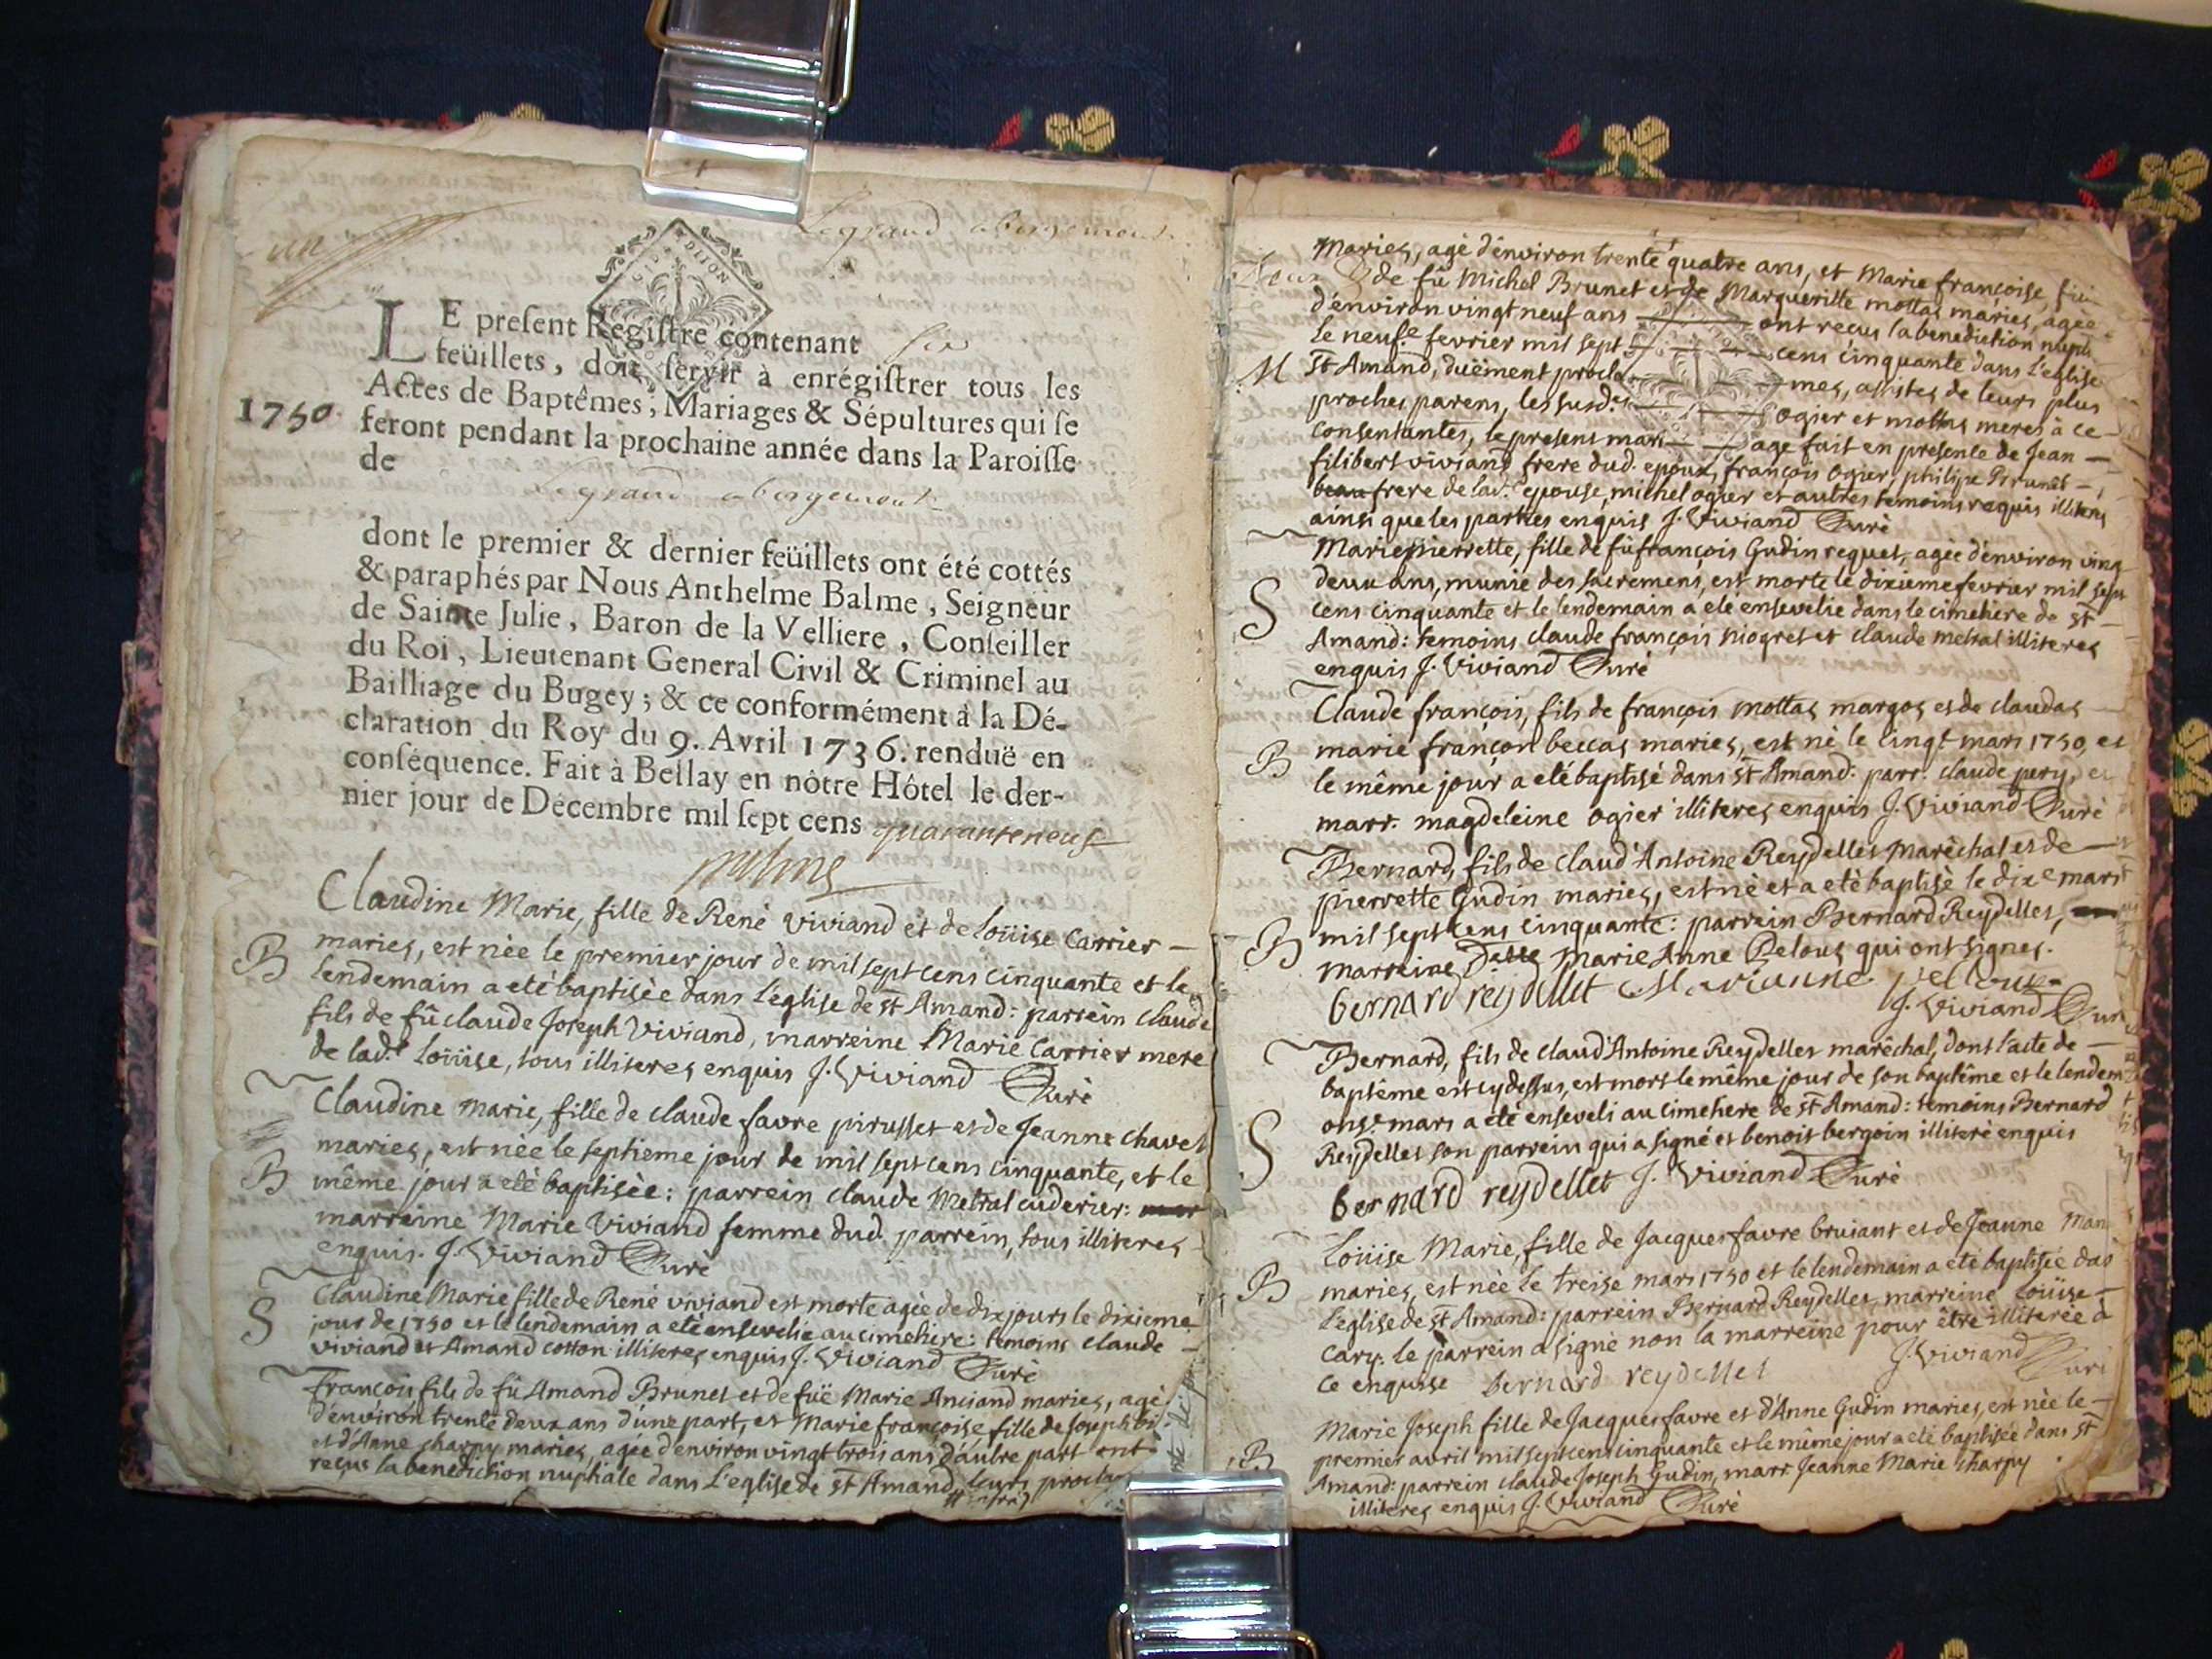 un
Legrand abergement
GEN. DIJON
LE preſent Regiſtre contenant six
feüillets, doit ſervir à enrégiſtrer tous les
Actes de Baptêmes, Mariages & Sépultures qui ſe
1750.
feront pendant la prochaine année dans la Paroiſſe
de
Legrand abergement
dont le premier & dernier feüillets ont été cottés
& paraphés par Nous Anthelme Balme, Seigneur
de Sainte Julie, Baron de la Velliere, Conſeiller
du Roi, Lieutenant General Civil & Criminel au
Bailliage du Bugey; & ce conformément à la Dé-
claration du Roy du 9. Avril 1736. renduë en
conſéquence. Fait à Bellay en nôtre Hôtel le der-
nier jour de Décembre mil ſept cens quaranteneuf
Balme
Claudine Marie, fille de René Viviand et de Loüise Carrier —
B maries, est née le premier jour de mil sept cens cinquante et le
lendemain a eté baptisèe dans l'église de st Amand: parrein claude
fils de fû claude Joseph Viviand, marreine Marie Carrier mere
de lad.e Loüise, tous illiteres enquis J. Viviand Curè
Claudine Marie, fille de claude favre pirusset et de Jeanne chavet
maries, est nèe le septieme jour de mil sept cens cinquante, et le
B même jour a eté baptisèe: parrein claude Metral cuderier:
marreine Marie Viviand femme dud. parrein, tous illiteres
enquis. J. Viviand Curè
Claudine Marie fille de René viviand est morte agèe de dix jours le dixieme
S jour de 1750 et le lendemain a eté ensevelie au cimetiere: temoins claude —
viviand et Amand cotton illiteres enquis J. Viviand Curè
François fils de fû Amand Brunet et de fuë Marie Anciand maries, agè
d'environ trente deux ans d'une part, et Marie françoise fille de Joseph
et d'Anne charpy maries, agée d'environ vingt trois ans d'autre part ont
reçus la benediction nuptiale dans l'eglise de st Amand,
Maries, agè d'environ trente quatre ans, et Marie françoise,
de fû Michel Brunet et de Margueritte mottas maries, agèe
d'environ vingt neuf ans — ont reçus la benediction nupti
le neuf.e fevrier mil sept — cens cinquante dans l'eglise
M st Amand, duëment procla — mes, assistes de leurs plus
proches parens, les susd.es — ogier et mottas meres à ce —
consentantes, le present mari — age fait en presence de Jean —
filibert viviand frere dud. epoux, françois ogier, philipe Brunet —,
beau frere de lad.e epouse, michel ogier et autres temoins requis illiteres
ainsi que les parties enquis J. Viviand Curè
Marie pierrette, fille de fû françois Gudin requet, agèe d'environ ving
deux ans, munie des sacremens, est morte le dixieme fevrier mil sept
S cens cinquante et le lendemain a eté ensevelie dans le cimetiere de st —
Amand: temoins claude françois niogret et claude metral illiteres
enquis J. Viviand Curè
Claude françois, fils de françois mottas margos et de claudas —
marie françon beccas maries, est nè le cinqt mars 1750, et
B le même jour a eté baptisè dans st Amand: parr. claude pery, et
marr. magdeleine ogier illiteres enquis J. Viviand Curè
Bernard, fils de claud'Antoine Reydellet maréchal et de —
pierrette Gudin maries, est nè et a eté baptisè le dix.e mars
B mil sept cens cinquante: parrein Bernard Reydellet,
marreine D.elle Marie Anne Pelous qui ont signes.
bernard reydellet Marianne pelloux
J. Viviand Cur
Bernard, fils de claud'Antoine Reydellet maréchal, dont l'acte de —
baptême est cy dessus, est mort le même jour de son baptême et le lendem
S onse mars a eté enseveli au cimetiere de st Amand: temoins Bernard
Reydellet son parrein qui a signé et benoit bergoin illiteré enquis
bernard reydellet J. Viviand Curè
Loüise Marie, fille de Jacques favre bruiant et de Jeanne
B maries, est nèe le treise mars 1750 et le lendemain a eté baptisèe das
l'eglise de st Amand: parrein Bernard Reydellet, marreine Loüise —
cary: le parrein a signè non la marreine pour être illiterèe à
ce enquise bernard reydellet J. Viviand Curè
Marie Joseph fille de Jacques favre et d'Anne Gudin maries, est nèe le —
premier avril mil sept cens cinquante et le même jour a eté baptisèe dans st
B Amand: parrein claude Joseph Gudin, marr. Jeanne Marie charpy
illiteres enquis J. Viviand Curè